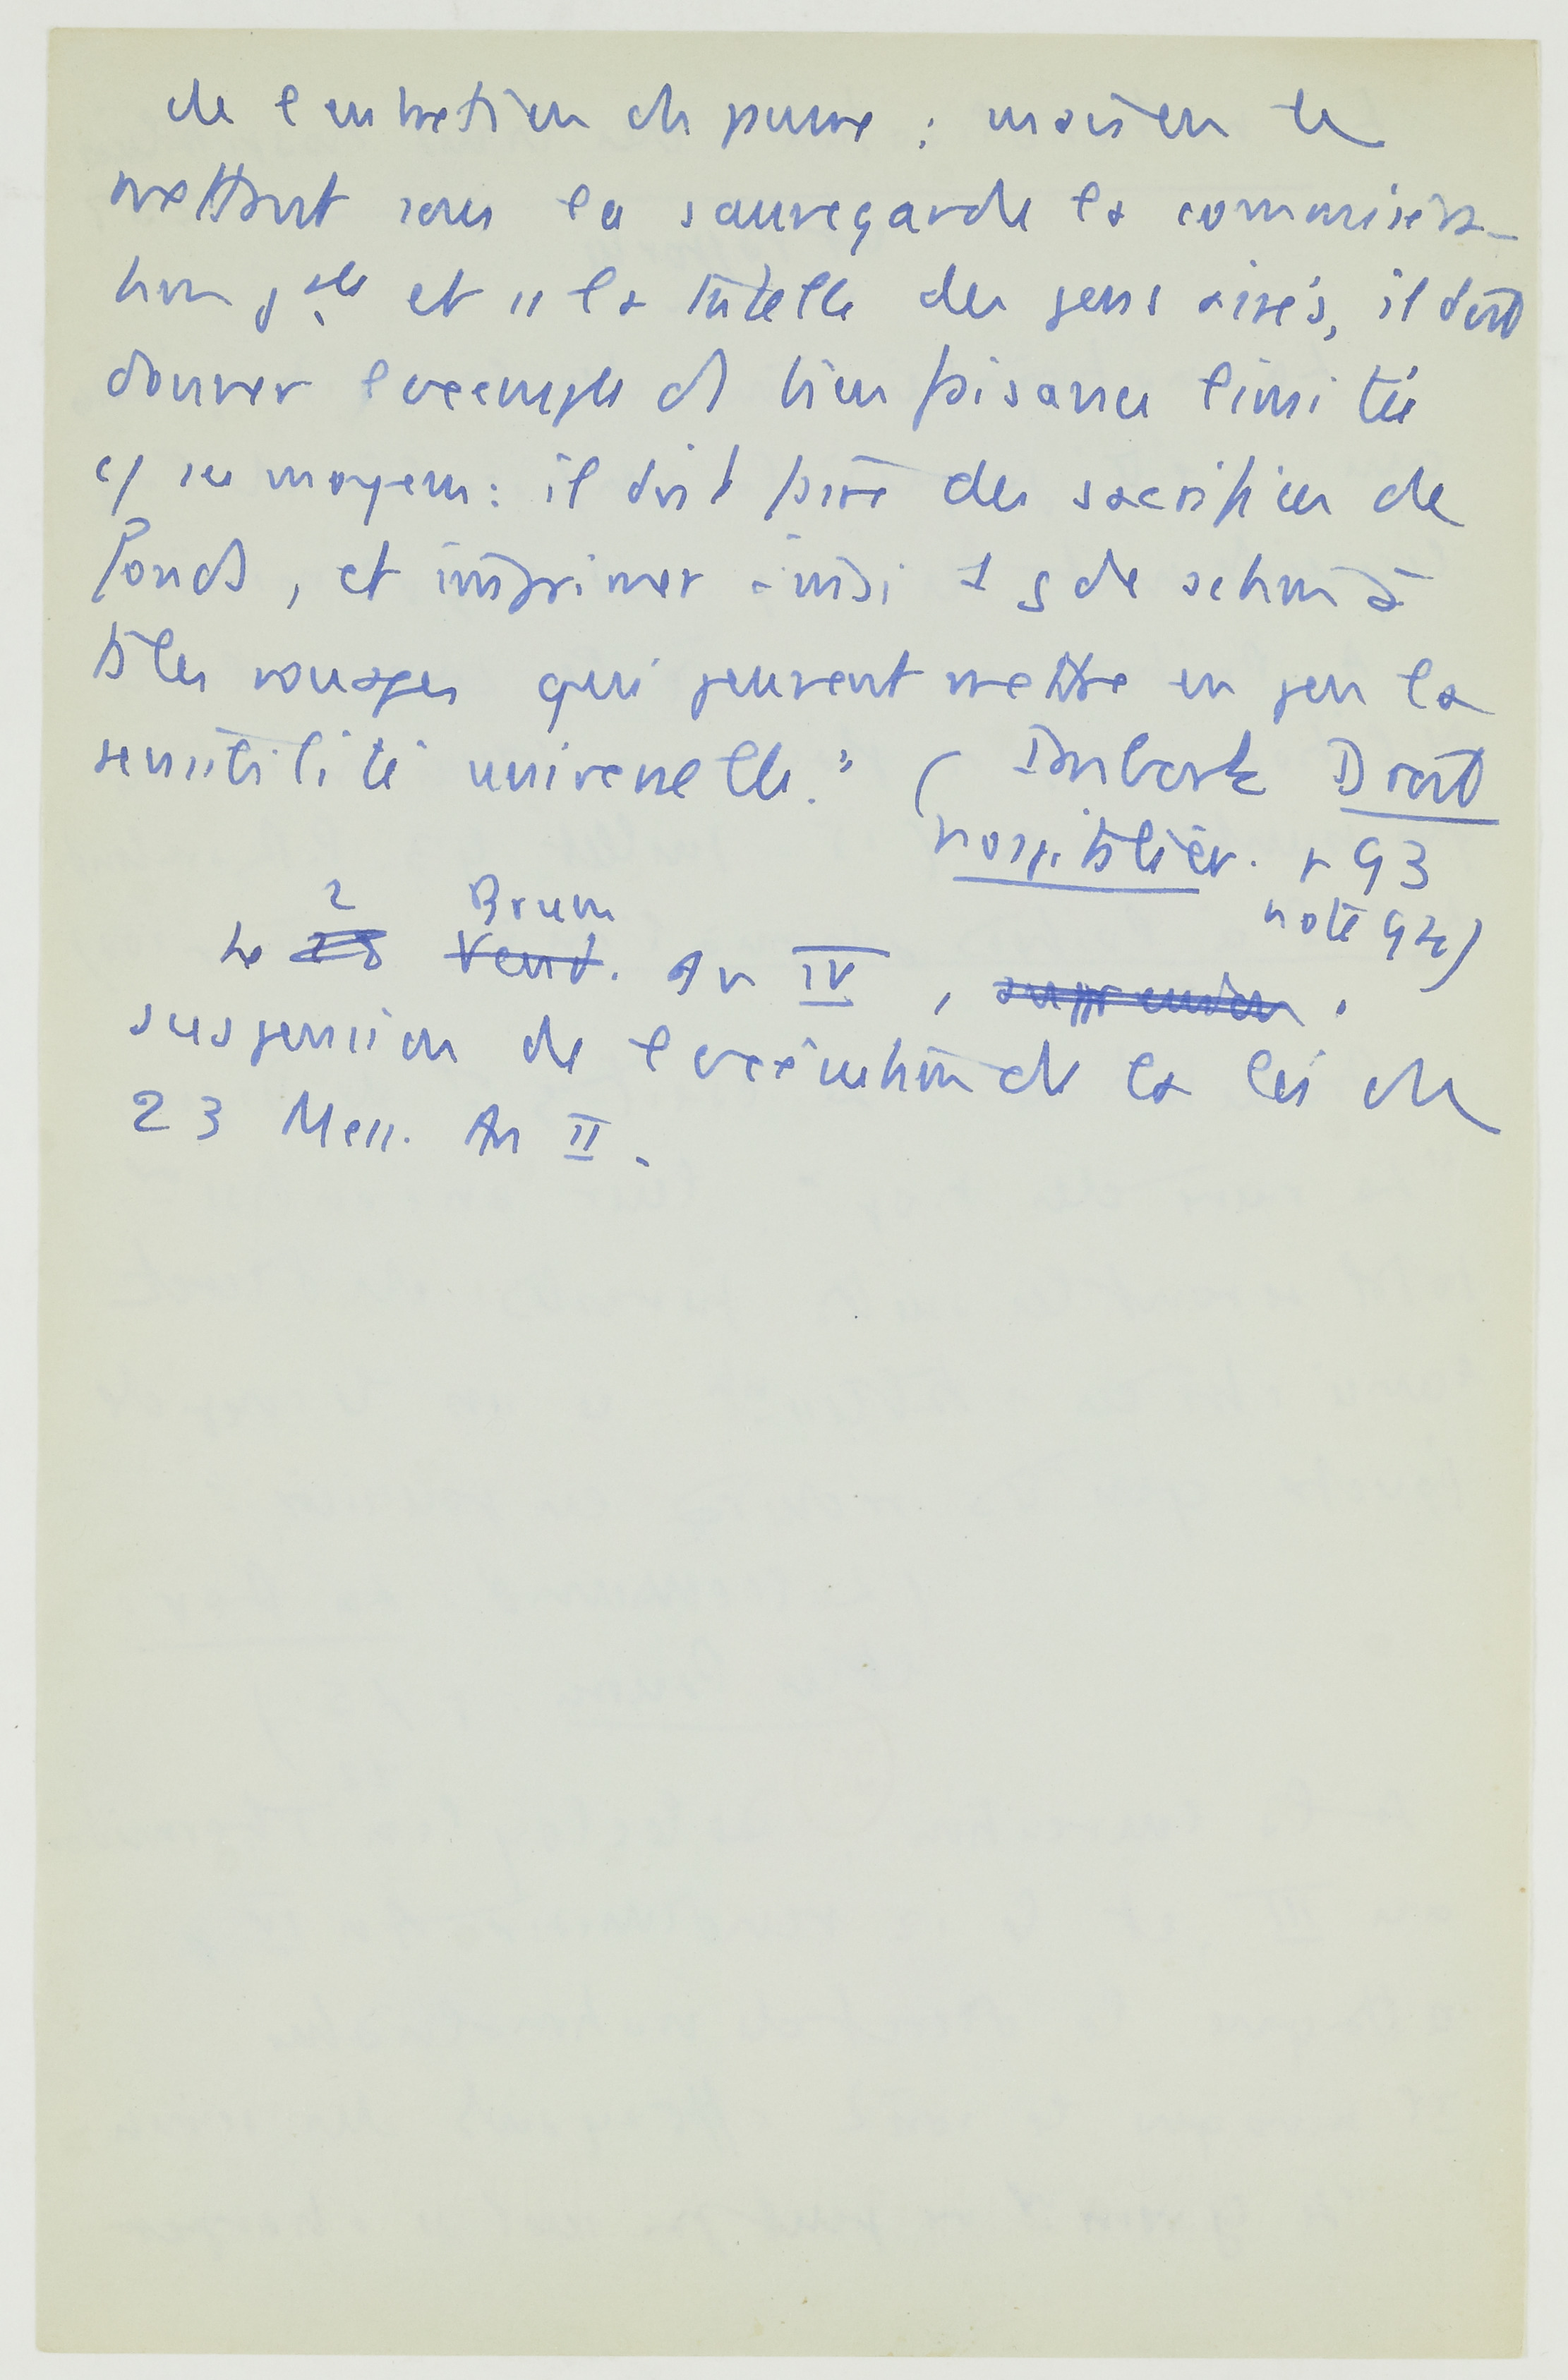 de l entretien du pauvre ; mais en le
mettant sous la sauvegarde la commiséra-
tion gale et ss la tutelle des gens aisés, il doit
donner l exemple d bienfaisance limitée
c/ ses moyens : il doit faire des sacrifices de
fonds, et imprimer ainsi 1 gde action à
ts les rouages qui peuvent mettre en jeu la
sensibilité universelle." ( Imbert Droit
hospitalier. p 93
note 94)
Le 2 Brum
28 Vend. An IV , suppression ,
suspension de l exécution de la loi du
23 Mess. An II.